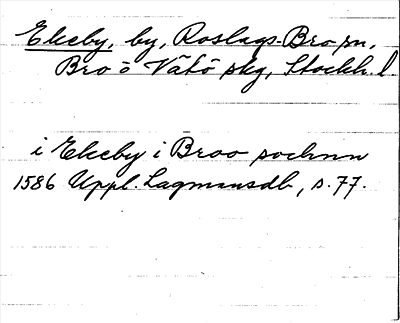 Ekeby, by, Roslags-Bro sn,
Bro o Vätö skg, Stockh. l
i Ekeby i Broo sochnn
1586 Uppl. Lagmansdb, s. 77.